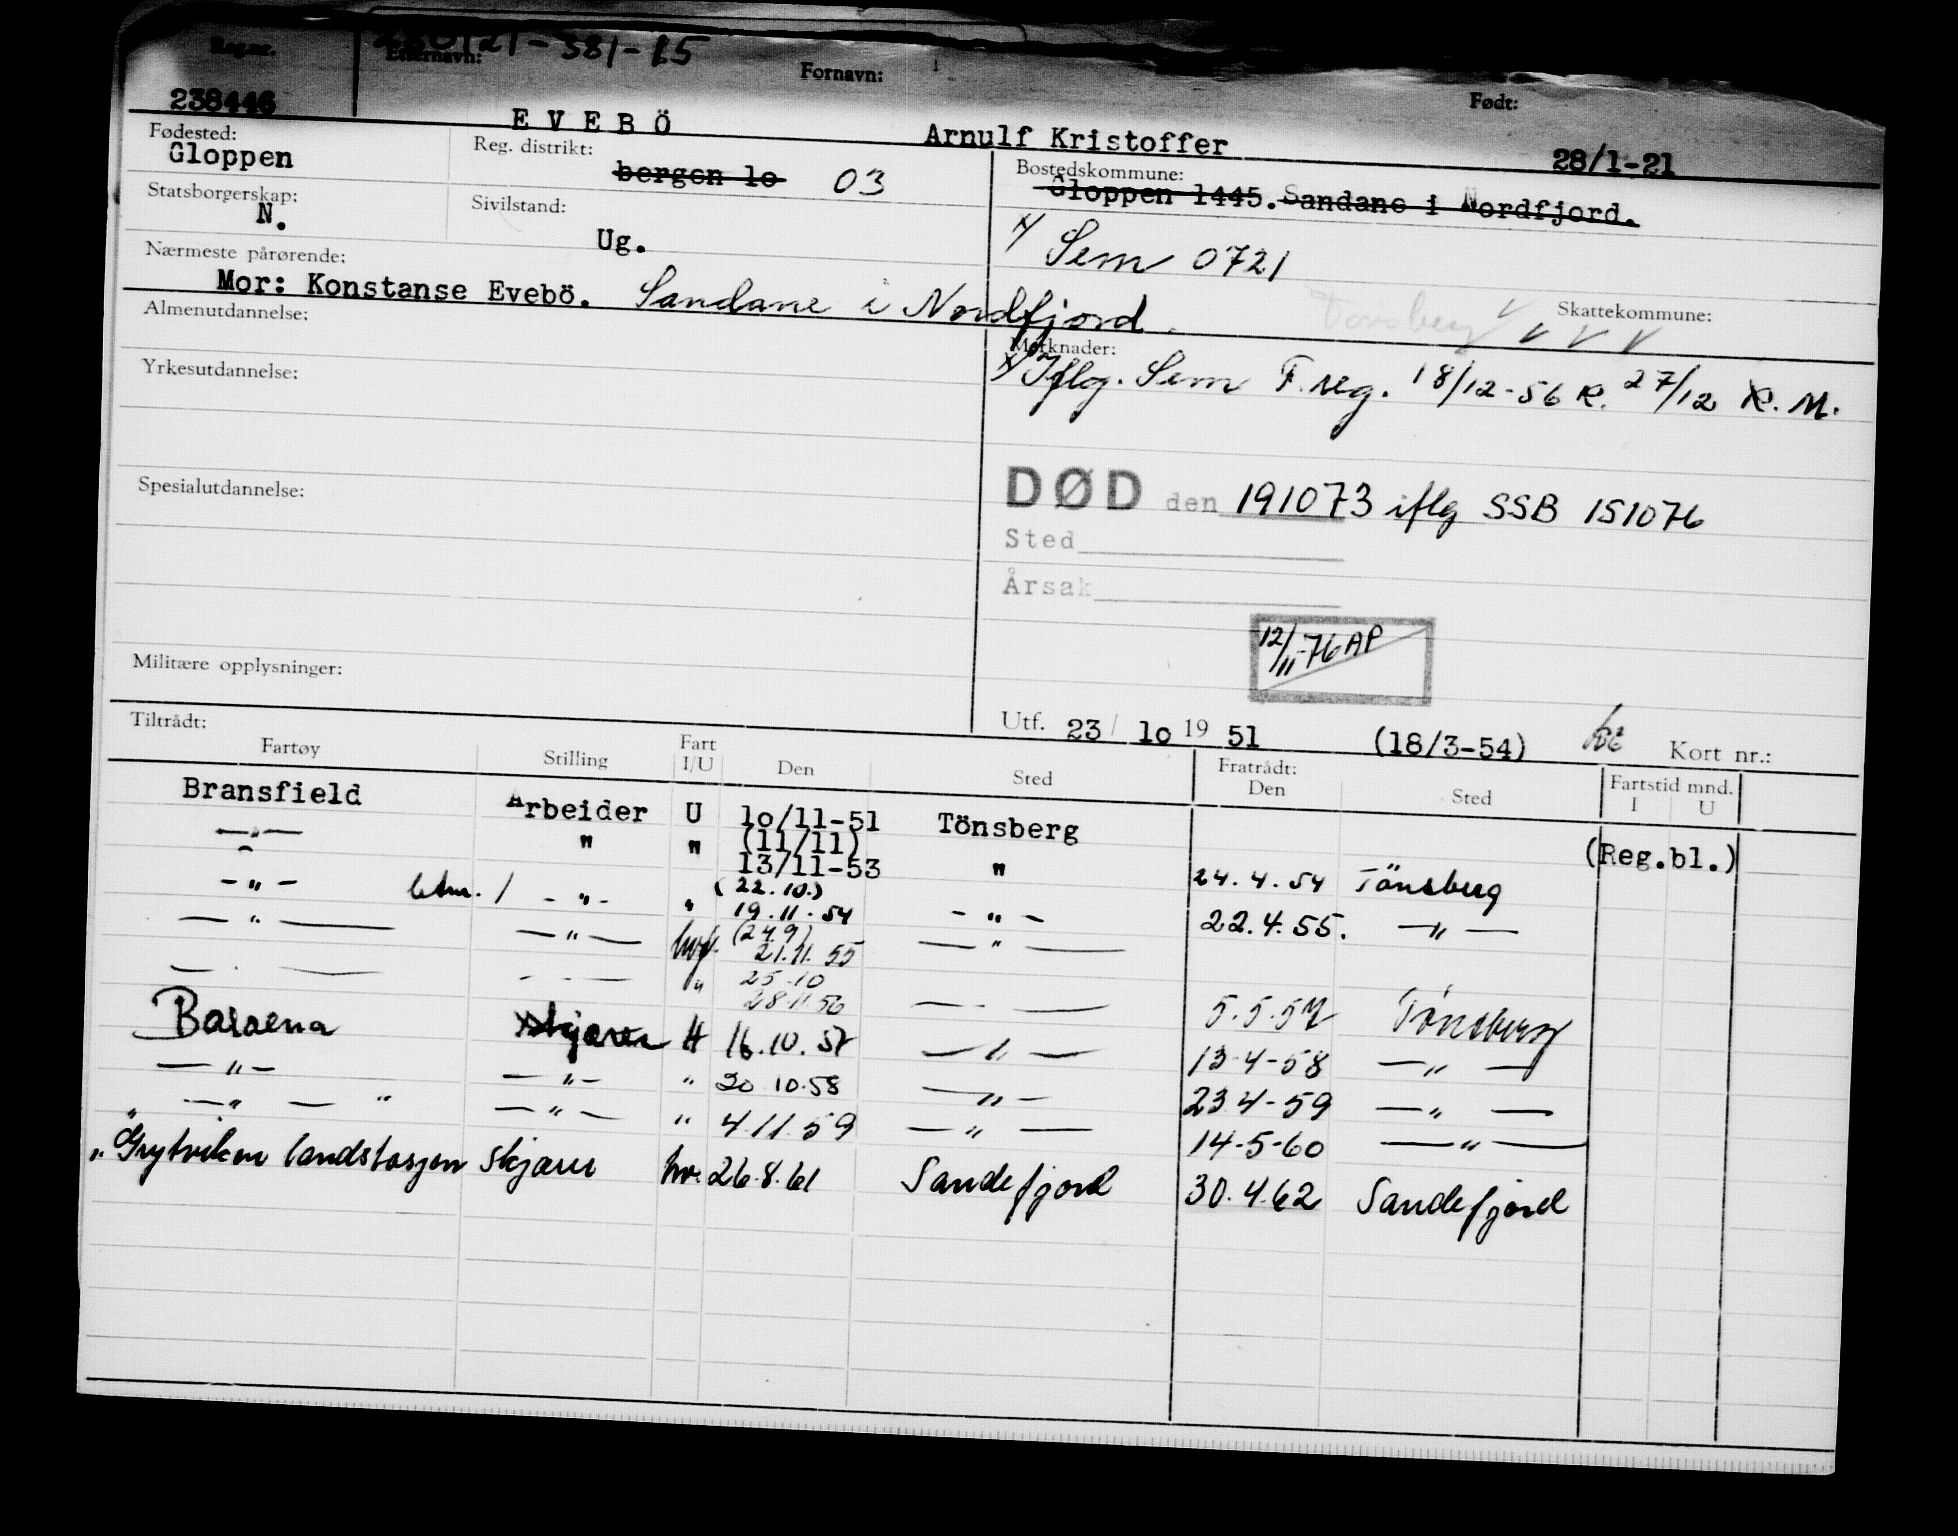 Reg.nr. 280121-381-15
Efternavn: Fornavn: Født:
238446 EVEBÖ Arnulf Kristoffer 28/1-21
Fødested: Reg. distrikt: Bostedskommune:
Gloppen bergen lo 03 Gloppen 1445. Sandane i Nordfjord.
Statsborgerskap: Sivilstand:
N. Ug. x/ Sem 0721
Nærmeste pårørende:
Mor: Konstanse Evebö. Sandane i Nordfjord.
Tönsberg Skattekommune:
Almenutdannelse: Merknader:
x/ Iflg. Sem F.reg. 18/12-56 R. 27/12 K.M.
Yrkesutdannelse:
Spesialutdannelse:
DØD den 191073 iflg SSB 151076
Sted
Årsak
12/11-76 AP
Militære opplysninger:
Utf. 23/ lo 19 51 (18/3-54) Kort nr.:
Tiltrådt: Fratrådt: Fartstid mnd.
Fartøy Stilling Fart I/U Den Sted Den Sted I U
Bransfield Arbeider U lo/11-51 Tönsberg
(11/11) (Reg.bl.)
-"- " " 13/11-53 " 24.4.54 Tönsberg
(22.10.)
-"- / -"- " 19.11.54 -"- 22.4.55. -"-
(24.9)
-"- -"- hvf. 21.11.55 -"-
25.10
" 28.11.56 5.5.57 Tönsberg
Balaena skjærer H 16.10.57 -"- 13-4-58 -"-
-"- -"- " 20 10.58 -"- 23 4-59 -"-
-"- " -"- " 4 11.59 -"- 14-5-60 -"-
" Grytviken landstasjon skjærer hv. 26.8.61 Sandefjord 30.4.62 Sandefjord